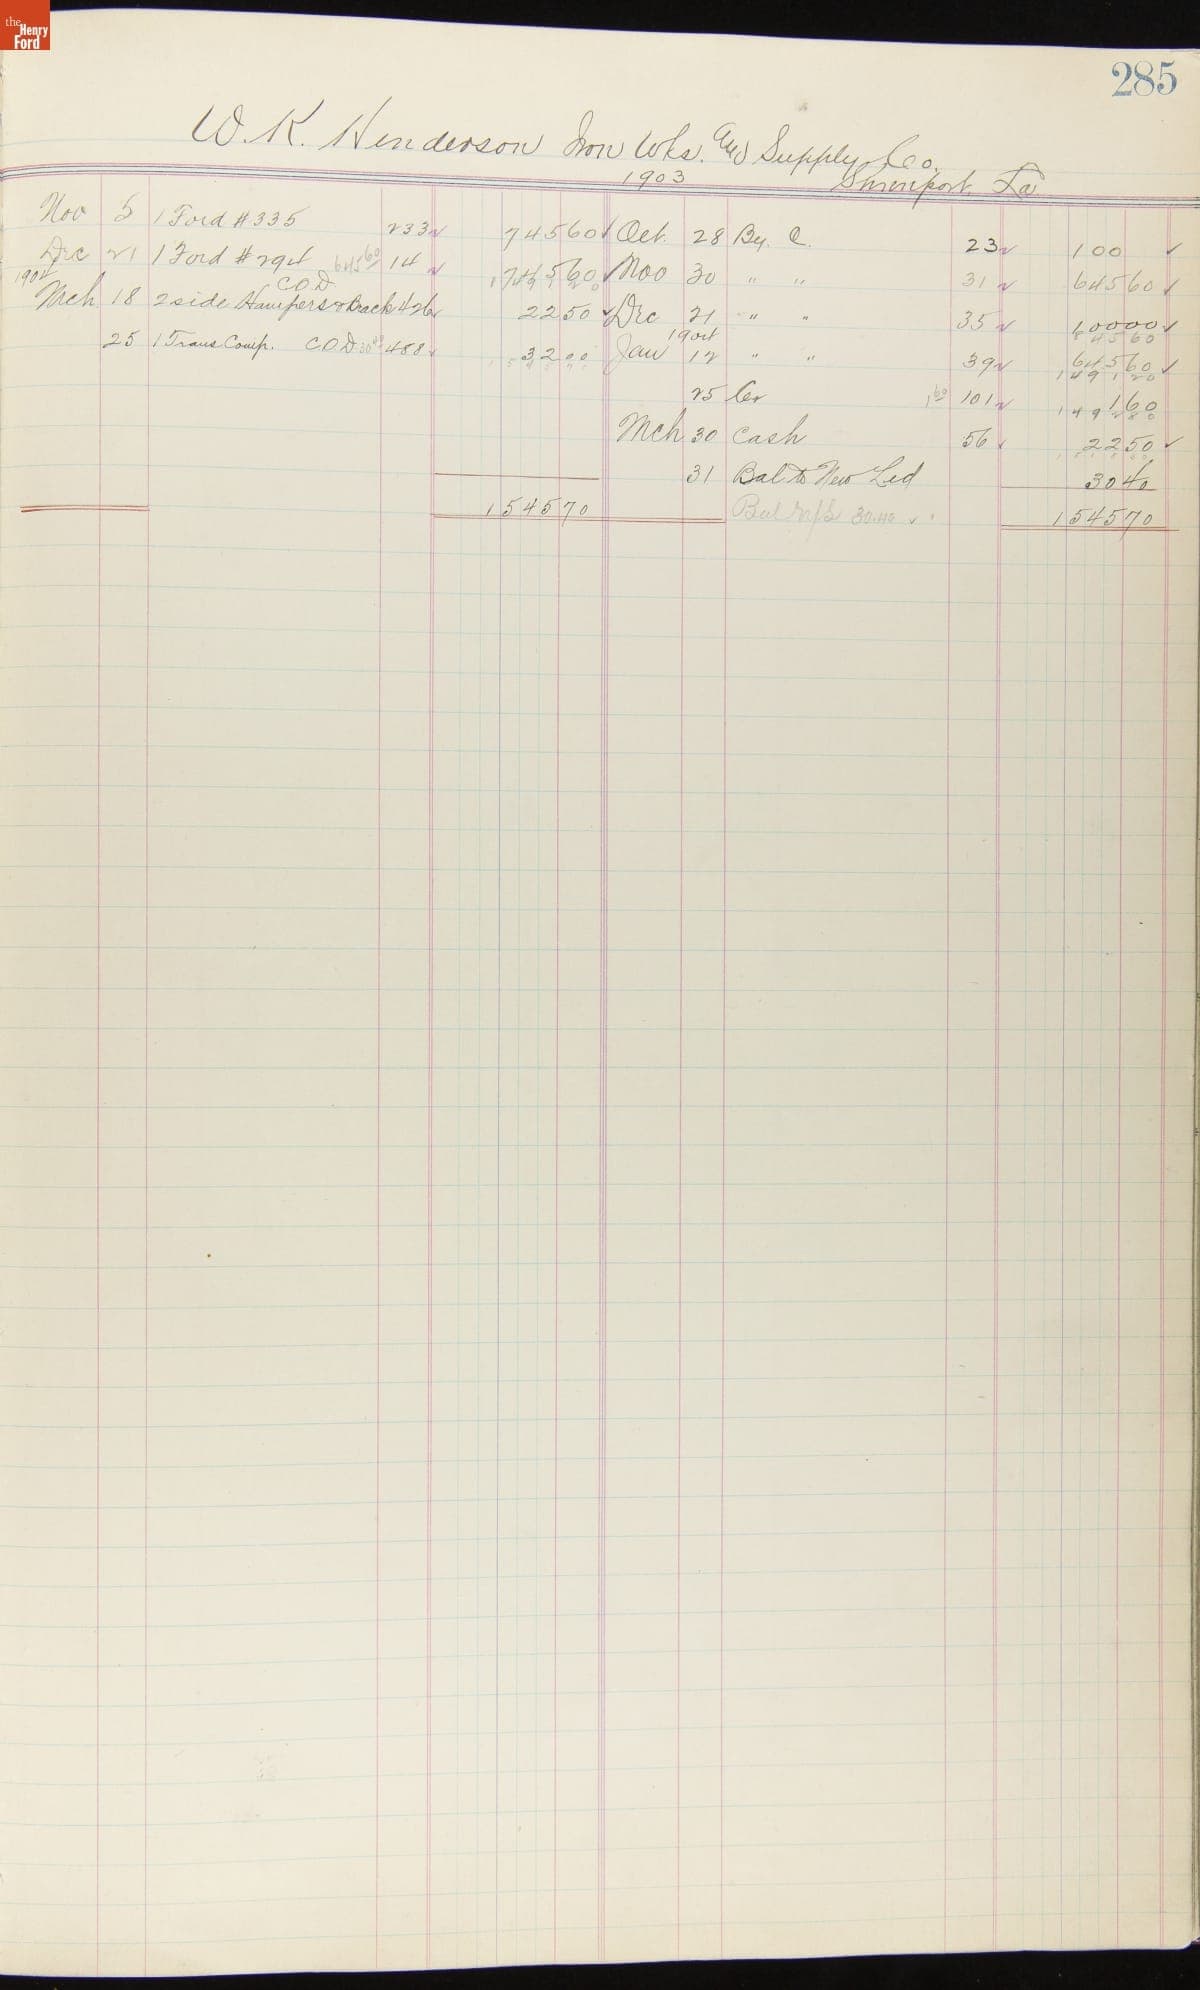 the Henry Ford
285
W. K. Henderson Iron Wks. and Supply Co.
1903 Shreveport La
Nov 5 1 Ford #335 233 745 60 Oct. 28 By C. 23 100
Dec 21 1 Ford #294 645 60 14 745 60 Nov 30 " " 31 645 60
1904 C.O.D 1491 20
Mch 18 2 side Hampers & Back 426 22 50 Dec 21 " " 35 100 00
845 60
1904
25 1 Trans Comp. C O D 30 40 488 32 00 Jan 12 " " 39 645 60
1491 20
25 Cr 1 60 101 1 60
1492 80
Mch 30 Cash 56 22 50
31 Bal to New Led 30 40
1545 70 Bal 30.40 1545 70